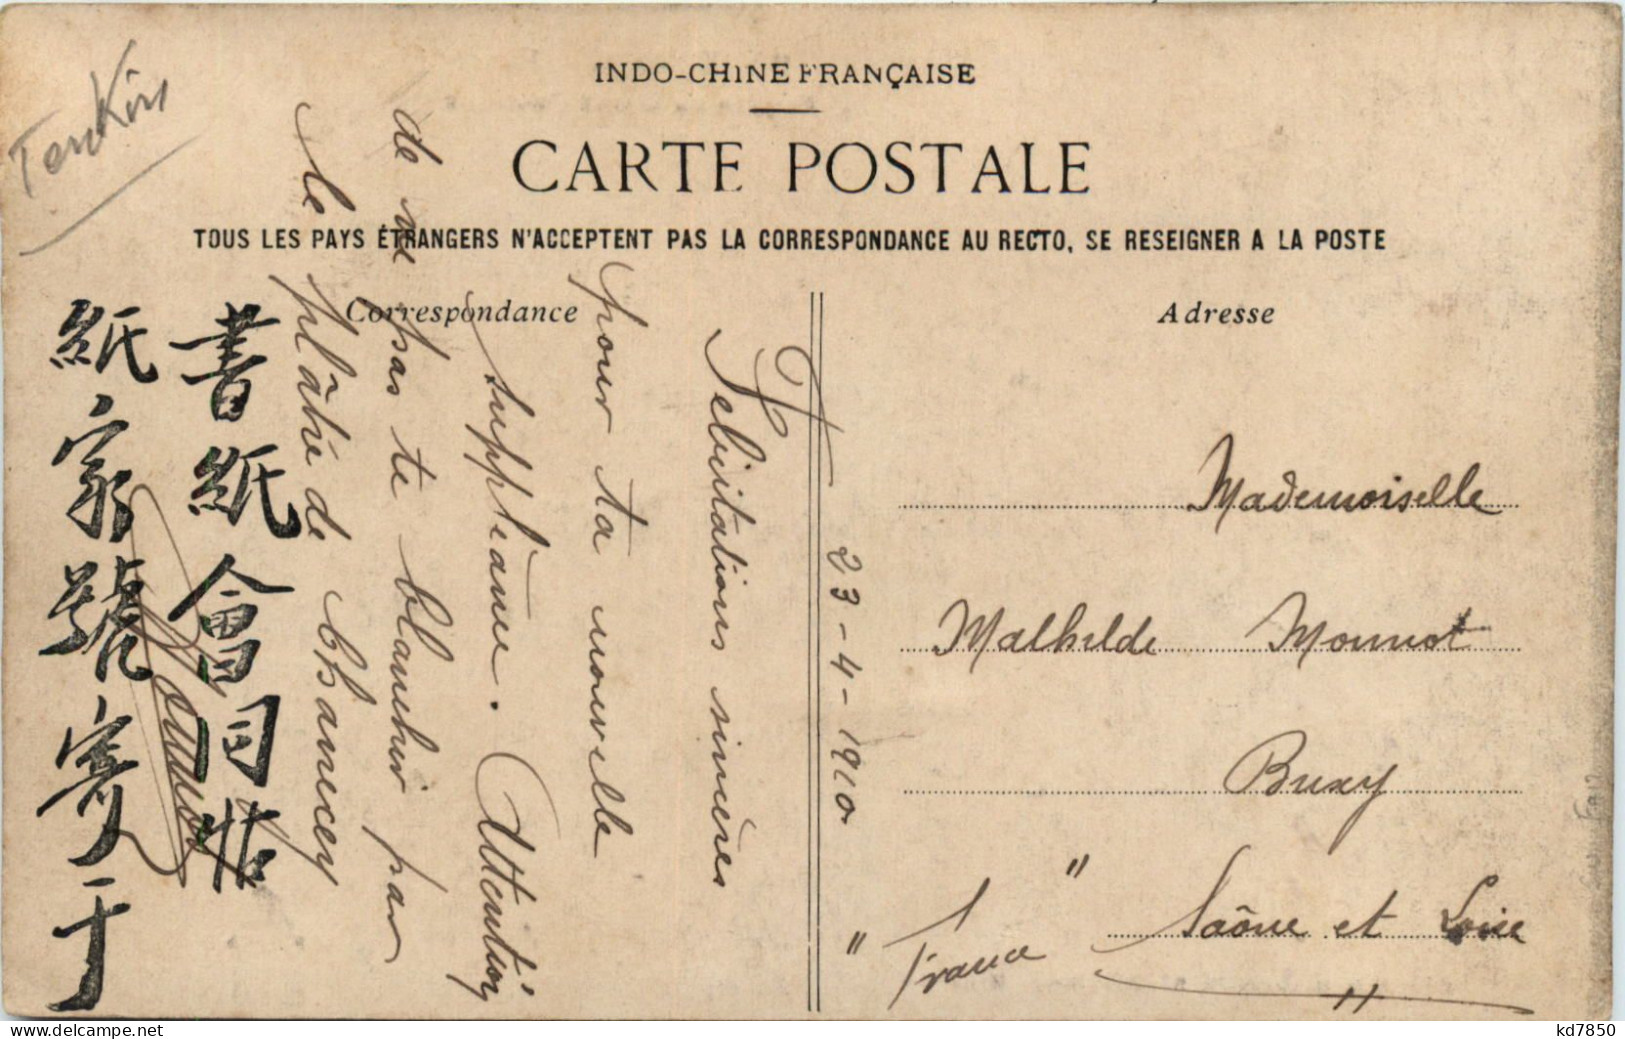 TonKin
INDO-CHINE FRANÇAISE
CARTE POSTALE
TOUS LES PAYS ÉTRANGERS N'ACCEPTENT PAS LA CORRESPONDANCE AU RECTO, SE RESEIGNER A LA POSTE
Correspondance
Adresse
23-4-1910
Felicitations sincères
pour ta nouvelle
suppléance. Attention
de ne pas te blanchir par
le plâtre de Chancey
書紙會同
紙家號寄于
Mademoiselle
Mathilde Monnot
Buxy
Saône et Loire
" France "
kd7850